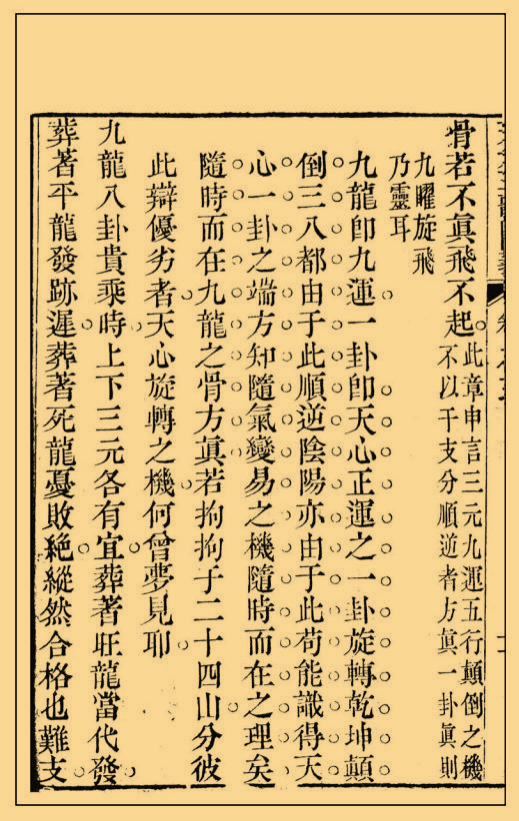 骨若不眞飛不起此章申言三元九運五行顚倒之機
不以干支分順逆者方眞一卦眞則
九曜旋飛
乃靈耳
九龍卽九運一卦卽天心正運之一卦旋轉乾坤顚
倒三八都由于此順逆陰陽亦由于此苟能識得天
心一卦之端方知隨氣變易之機隨時而在之理矣
隨時而在九龍之骨方眞若拘拘于二十四山分彼
此辯優劣者天心旋轉之機何曾夢見耶
九龍八卦貴乘時上下三元各有宜葬著旺龍當代發
葬著平龍發跡遲葬著死龍憂敗絶縱然合格也難支